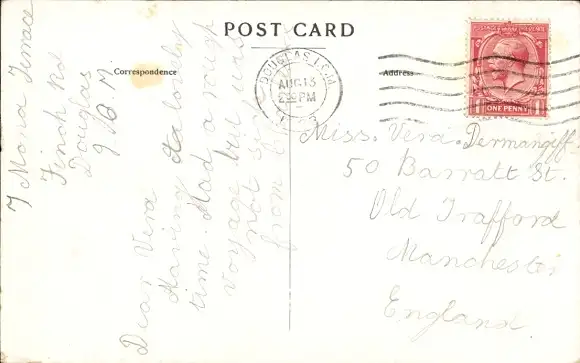 POST CARD
Correspondence
Address
DOUGLAS I.O.M.
AUG 13
2 30 PM
POSTAGE REVENUE
ONE PENNY
7 Mona Terrace
Finch Rd
Douglas
I O M
Dear Vera
Having a lovely
time. Had a rough
voyage but was
not sick
from
Miss. Vera. Dermangiff
50 Barratt St.
Old Trafford
Manchester
England